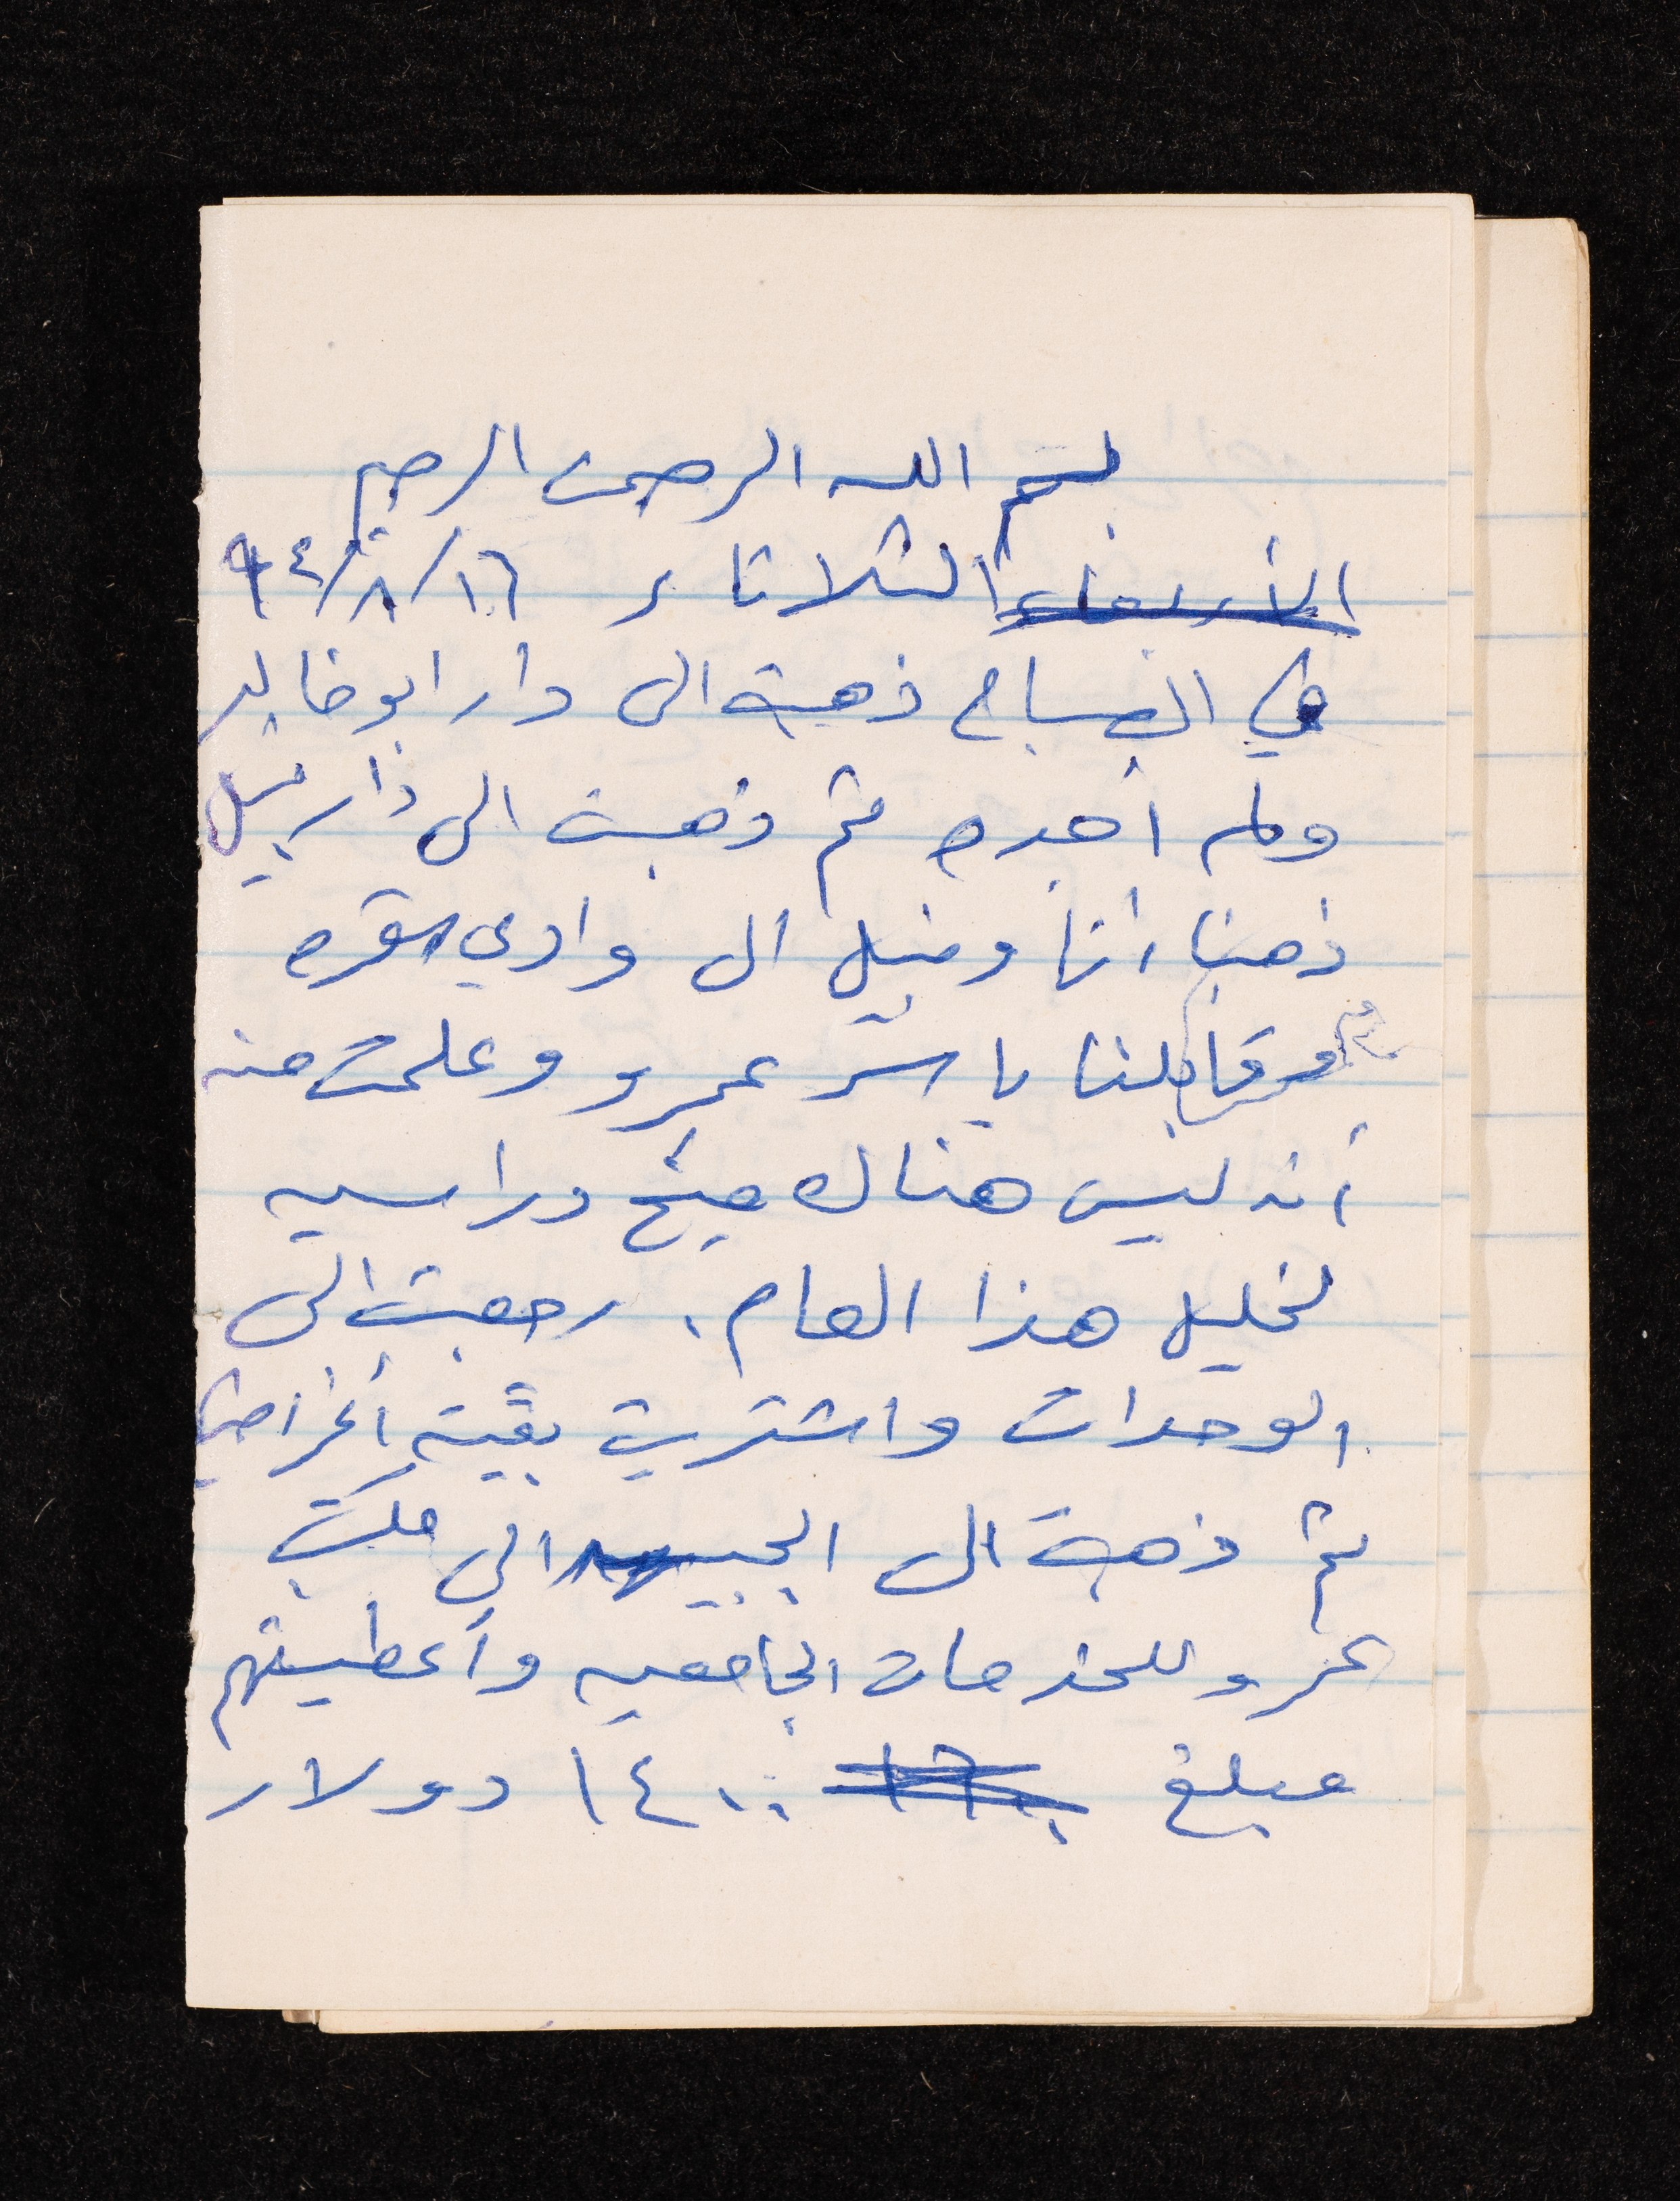 بسم الله الرحمن الرحيم
الأربعاء الثلاثاء ١٦/٨/٩٤
في الصباح ذهبت الى دار ابو خالد
ولم اجده ثم ذهبت الى دار نبيل
ذهبنا أنا ونبيل الى وادي السقره
وقابلنا ياسر عمرو وعلمت منه
أنه ليس هناك منح دراسيه
لخليل هذا العام. رجعت الى
الوحدات واشتريت بقية أغراضي
ثم ذهبت الى الجبيهه الى مكتب
عمرو للخدمات الجامعيه وأعطيتهم
مبلغ ١٤٠٠ دولار